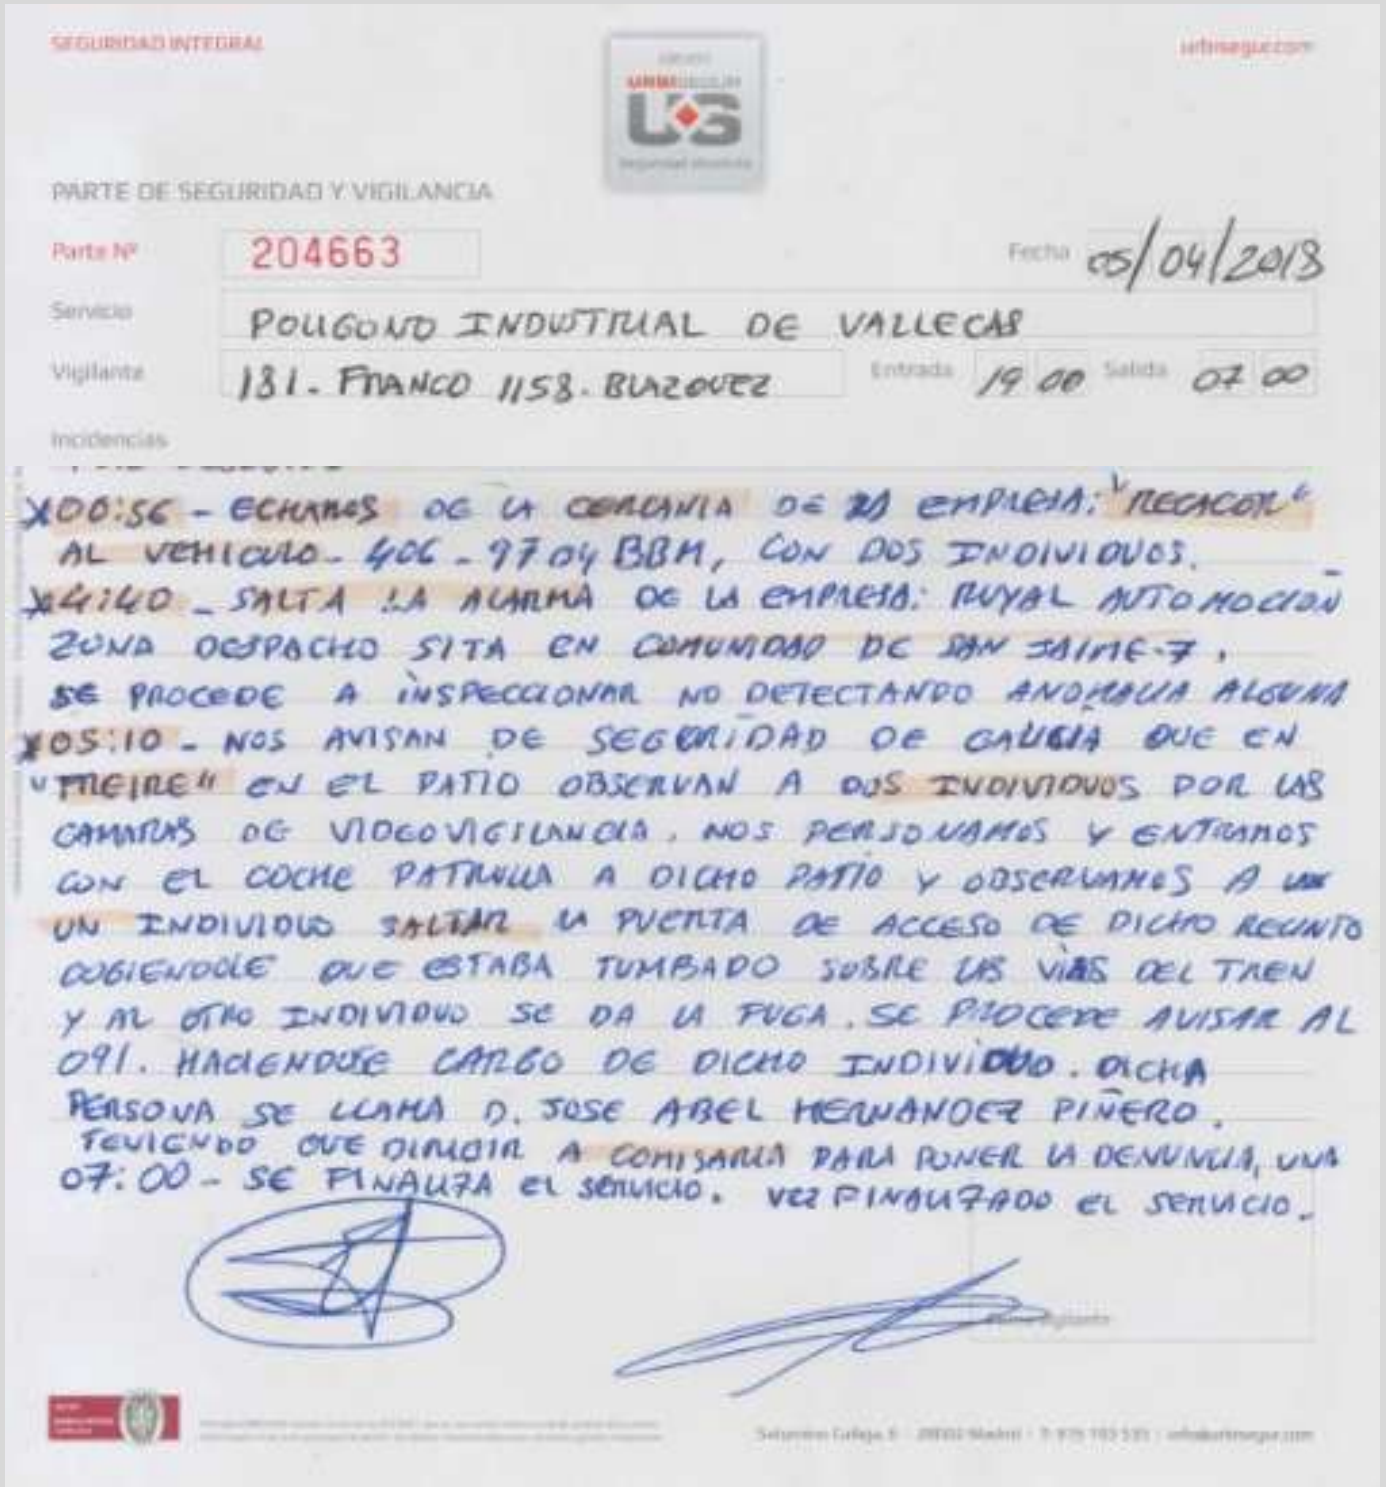 SEGURIDAD INTEGRAL
urbisegur.com
GRUPO
URBISEGUR
UG
Seguridad
PARTE DE SEGURIDAD Y VIGILANCIA
Parte Nº 204663
Fecha 05/04/2018
Servicio POLIGONO INDUSTRIAL DE VALLECAS
Vigilante 181. FRANCO 1158. BLAZQUEZ Entrada 19 00 Salida 07 00
Incidencias
X00:56 - ECHAMOS DE LA CERCANIA DE LA EMPRESA: "RECACOR"
AL VEHICULO - 406 - 9704 BBM, CON DOS INDIVIDUOS.
X4:40 - SALTA LA ALARMA DE LA EMPRESA: RUYAL AUTOMOCION
ZONA DESPACHO SITA EN COMUNIDAD DE SAN JAIME-7,
SE PROCEDE A INSPECCIONAR NO DETECTANDO ANOMALIA ALGUNA
X05:10 - NOS AVISAN DE SEGURIDAD DE GALICIA QUE EN
"FREIRE" EN EL PATIO OBSERVAN A DOS INDIVIDUOS POR LAS
CAMARAS DE VIDEOVIGILANCIA. NOS PERSONAMOS Y ENTRAMOS
CON EL COCHE PATRULLA A DICHO PATIO Y OBSERVAMOS A
UN INDIVIDUO SALTAR LA PUERTA DE ACCESO DE DICHO RECINTO
COGIENDOLE QUE ESTABA TUMBADO SOBRE LAS VIAS DEL TREN
Y AL OTRO INDIVIDUO SE DA LA FUGA. SE PROCEDE AVISAR AL
091. HACIENDOSE CARGO DE DICHO INDIVIDUO. DICHA
PERSONA SE LLAMA D. JOSE ABEL HERNANDEZ PIÑERO.
TENIENDO QUE DIRIGIR A COMISARIA PARA PONER LA DENUNCIA, UNA
07:00 - SE FINALIZA EL SERVICIO. VEZ FINALIZADO EL SERVICIO.
Firma Vigilante
Saturnino Calleja, 6 28002 Madrid info@urbisegur.com